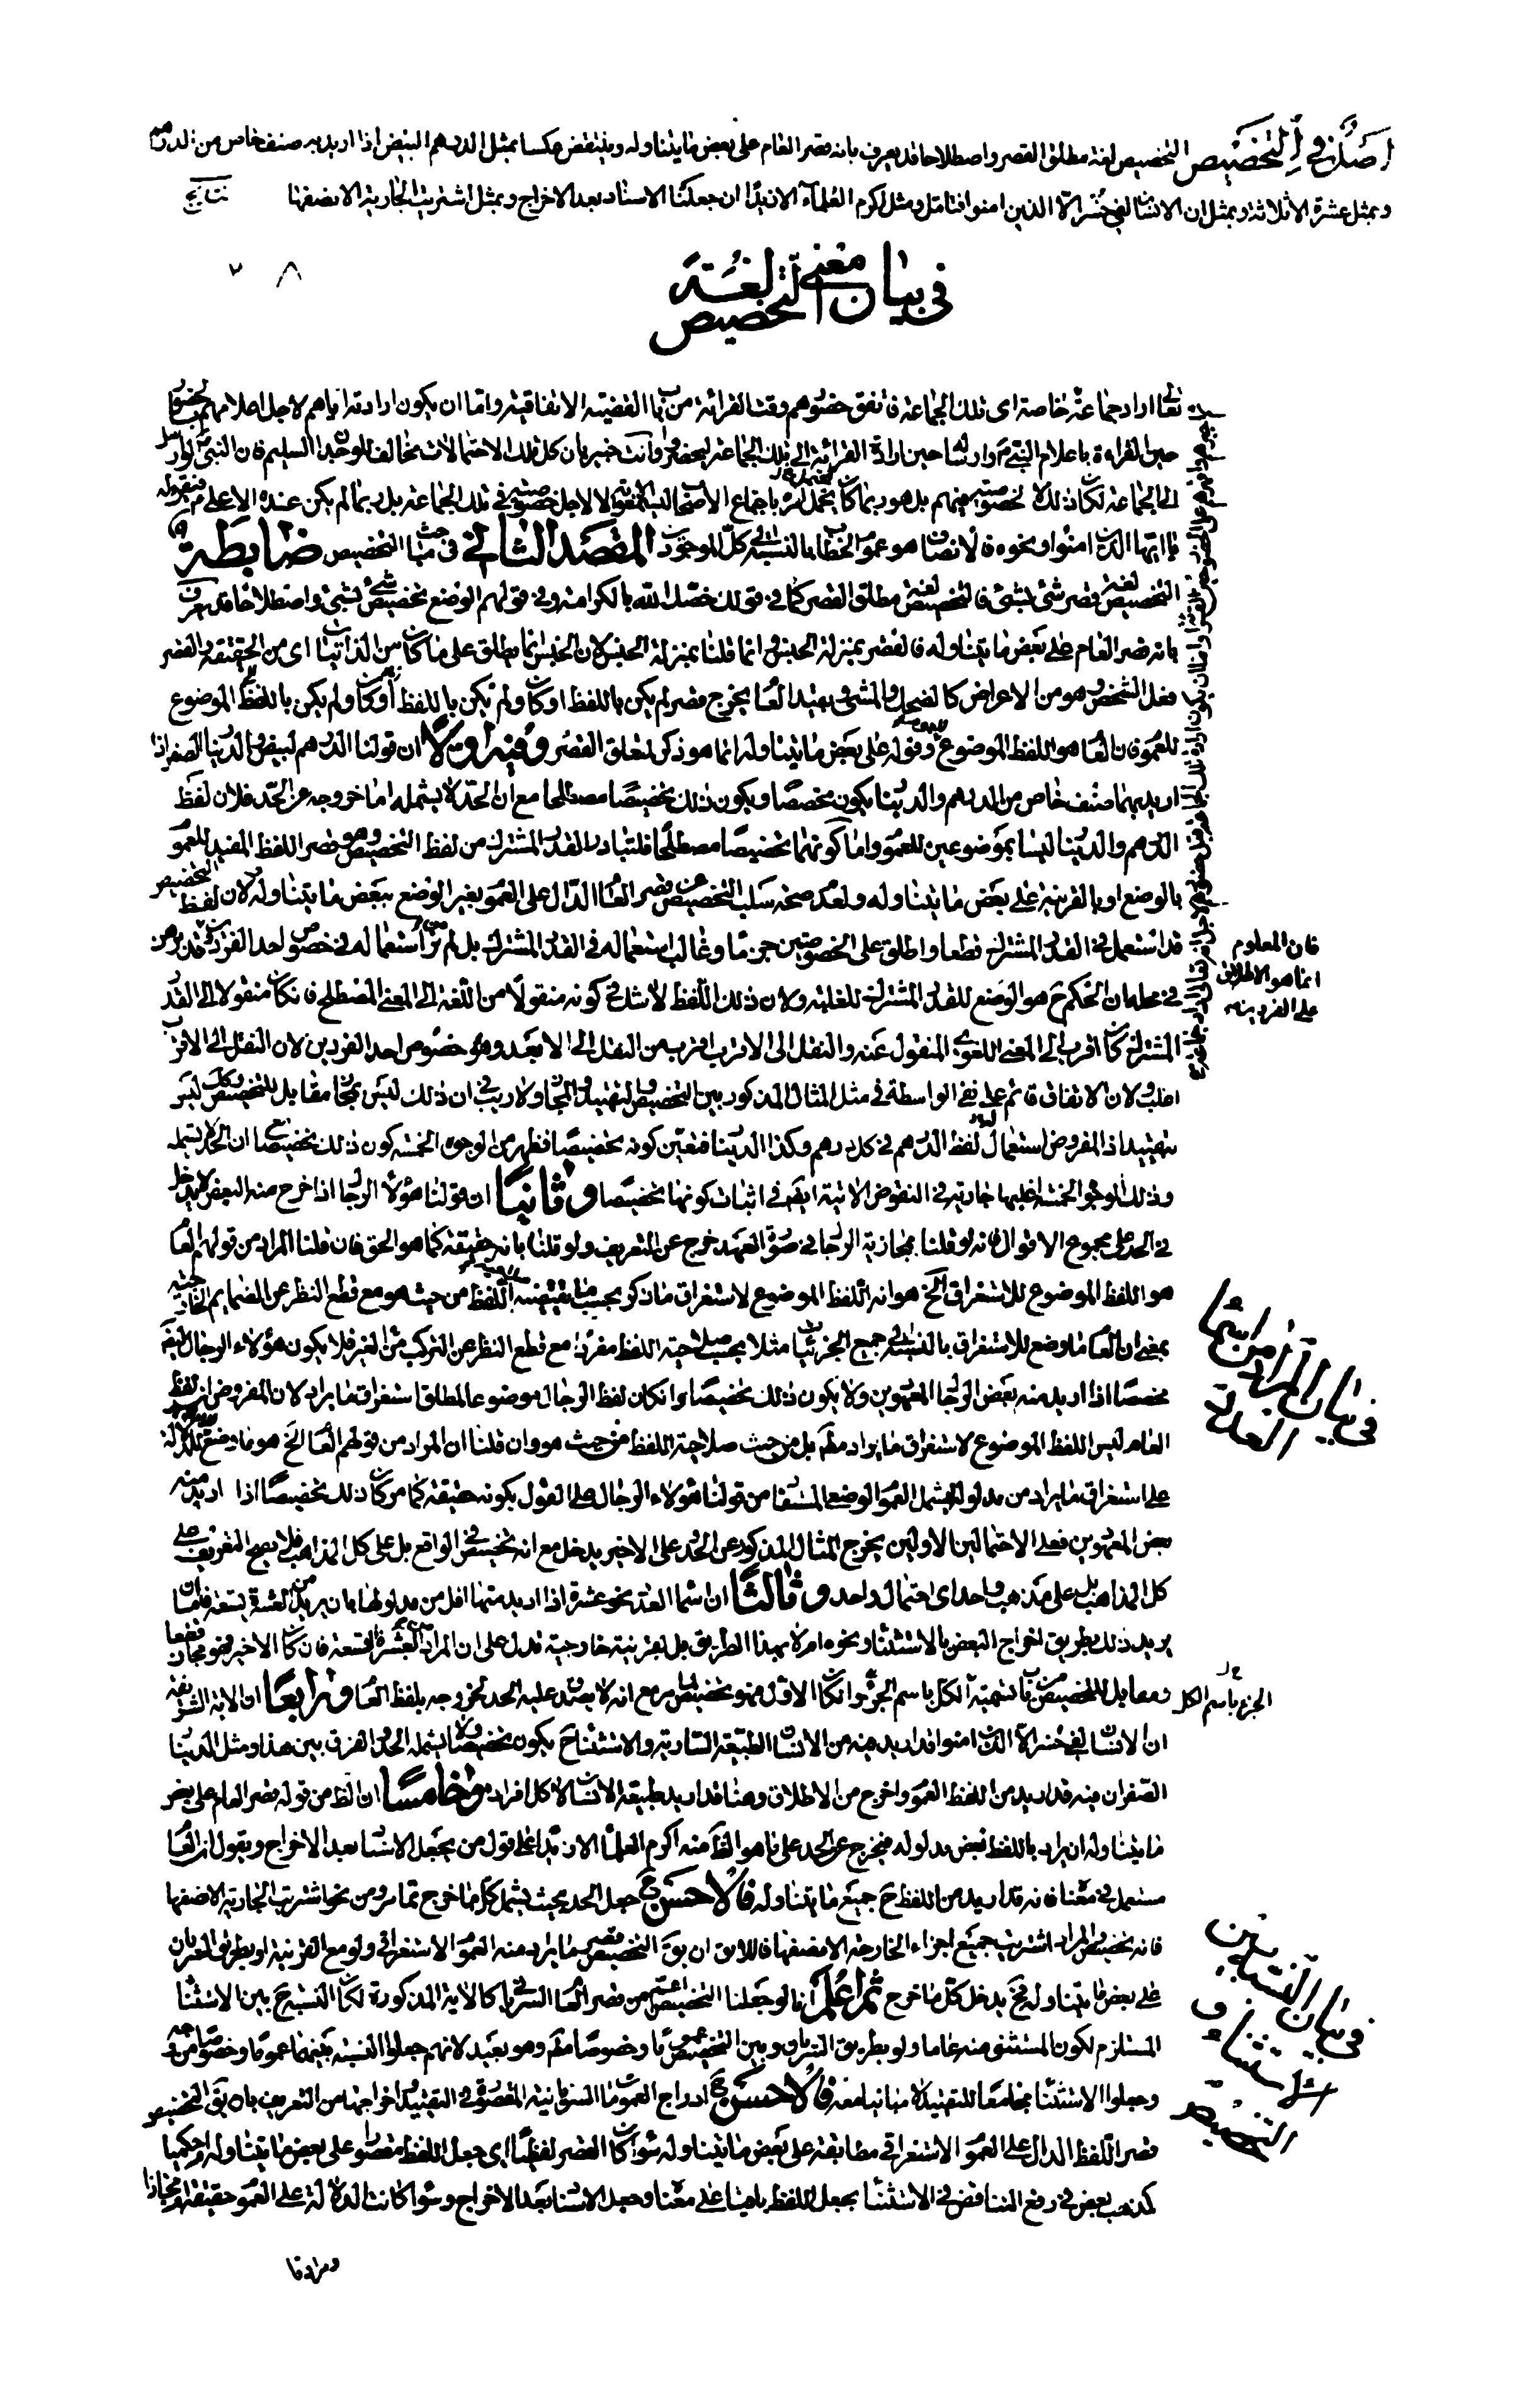 اصل في التخصيص التخصيص لغة مطلق القصر واصطلاحا قد يعرف بانه قصر العام على بعض ما يتناوله وينتقض عكسا بمثل الدراهم البيض اذا اريد به صنف خاص من الدراهم
وبمثل عشرة الا ثلاثة وبمثل ان الانسان لفي خسر الا الذين امنوا فتامل ومثل اكرم العلماء الا زيدا ان جعلنا الاسناد بعد الاخراج وبمثل اشتريت الجارية الا نصفها نتايج
في بيان معنى التخصيص لغة
تعالى اراد جماعة خاصة اى تلك الجماعة فاتفق حضورهم وقت القرائة من باب القضية الاتفاقية واما ان يكون ارادته اياهم لاجل اعلامهم
حين القراءة باعلام النبي وارد حين ارادة القرائة الى تلك الجماعة وانت خبير بان كل تلك الاحتمالات مخالف للوجدان السليم فان النبي
الى الجماعة لكان ذلك لا لخصوصية فيهم بل هو ربما كان باجماع الاصحاب لا لاجل خصوصية في تلك الجماعة بل ربما لم يكن عنده الا على
يا ايها الذين امنوا ونحوه فالانصاف هو عموم الخطاب بالنسبة الى كل الموجودين المقصد الثاني في مباحث التخصيص ضابطة
التخصيص لغة قصر شئ بشئ فالتخصيص لغة مطلق القصر كما في قولك خصك الله بالكرامة وفي قولهم الوضع تخصيص شئ بشئ واصطلاحا قد يعرف
بانه قصر العام على بعض ما يتناوله فالقصر بمنزلة الجنس وانما قلنا بمنزلة الجنس لان الجنس انما يطلق على ما كان من الذاتيات اى من الحقيقة والقصر
فعل الشخص وهو من الاعراض كالضحك والمشي وبقيد العام يخرج قصر لم يكن باللفظ او كان ولم يكن باللفظ او كان ولم يكن باللفظ الموضوع
للعموم فان العام هو اللفظ الموضوع للعموم وقوله على بعض ما يتناوله انما هو ذكر لمتعلق القصر وفيه اولا ان قولنا الدراهم البيض والدينار الصفر اذا
اريد بهما صنف خاص من الدراهم والدينار يكون مخصصا ويكون ذلك تخصيصا مصطلحا مع ان الحد لا يشمله اما خروجه عن الحد فلان لفظ
الدرهم والدينار ليسا بموضوعين للعموم واما كونهما تخصيصا مصطلحا فلتبادر القدر المشترك من لفظ التخصيص وهو قصر اللفظ المفيد للعموم
بالوضع او بالقرينة على بعض ما يتناوله ولعدم صحة سلب التخصيص عن قصر العام الدال على العموم بغير الوضع ببعض ما يتناوله ولان لفظ التخصيص
قد استعمل في القدر المشترك قطعا واطلق على الخصوصيتين جزما وغالب استعماله في القدر المشترك بل لم نر استعماله في خصوص احد الفردين وقد برهن
فان المعلوم
انما هو الاطلاق
على الفرد منه
في محله ان الحكم ح هو الوضع للقدر المشترك للغلبة ولان ذلك اللفظ لا شك في كونه منقولا من اللغة الى المعنى المصطلح فان كان منقولا الى القدر
المشترك كان اقرب الى المعنى اللغوي المنقول عنه والنقل الى الاقرب اقرب من النقل الى الابعد وهو خصوص احد الفردين لان النقل الى الاقرب
اغلب ولان الاتفاق قائم على نفي الواسطة في مثل المثال المذكور بين التخصيص والتقييد والمجاز ولا ريب في ان ذلك ليس بمجاز مقابل للتخصيص وكك ليس
بتقييد اذ المفروض استعمال لفظ الدرهم في كل درهم وكذا الدينار فتعين كونه تخصيصا فظهر من الوجوه الخمسة كون ذلك تخصيصا مع ان الحد لا يشمله
وتلك الوجوه الخمسة اغلبها جارية في النقوض الاتية ايضا في اثبات كونها تخصيصا وثانيا ان قولنا هؤلاء الرجال اذا خرج منه البعض لا يدخل
في الحد على مجموع الاقوال لانه لو قلنا بمجازية الرجال في صورة العهد خرج عن التعريف ولو قلنا بانه حقيقة كما هو الحق فان قلنا المراد من قولهم العام
هو اللفظ الموضوع للاستغراق الخ هو انه اللفظ الموضوع لاستغراق ما ذكر بحسب ما يقتضيه اللفظ من حيث هو مع قطع النظر عن الضمايم الخارجية
بمعنى ان العام ما وضع للاستغراق بالنسبة الى جميع الجزئيات مثلا بحسب صلاحية اللفظ مفردا مع قطع النظر عن التركيب من الغير فلا يكون هؤلاء الرجال ايضا
في بيان المراد من اسماء العدد
مخصصا اذا اريد منه بعض الرجال المعهودين ولا يكون ذلك تخصيصا وان كان لفظ الرجال موضوعا لمطلق استغراق ما يراد لان المفروض ان لفظ
العام ليس اللفظ الموضوع لاستغراق ما يراد مطلقا بل من حيث صلاحية اللفظ من حيث هو وان قلنا ان المراد من قولهم العام الخ هو ما وضع للدلالة
على استغراق ما يراد من مدلوله ليشمل العموم الوضعي المستفاد من قولنا هؤلاء الرجال على القول بكونه حقيقة كما مر كان ذلك تخصيصا اذا اريد منه
بعض المعهودين فعلى الاحتمالين الاولين يخرج المثال المذكور عن الحد وعلى الاخير يدخل مع انه تخصيص في الواقع بل على كل المذاهب فلا يصح التعريف على
كل المذاهب بل على مذهب واحد اى احتمال واحد وثالثا ان اسماء العدد نحو عشرة اذا اريد منها اقل من مدلولها بان يريد من العشرة تسعة فاما ان
يريد ذلك بطريق اخراج البعض بالاستثناء ونحوه ام لا بهذا الطريق بل بقرينة خارجية تدل على ان المراد من العشرة التسعة فان كان الاخير فهو مجاز قطعا
ومقابل للتخصيص من باب تسمية الكل باسم الجزء وان كان الاول فهو تخصيص مع انه لا يصدق عليه الحد لخروجه بلفظ العام ورابعا ان الاية الشريفة
الجزء باسم الكل
ان الانسان لفي خسر الا الذين امنوا قد اريد فيه من الانسان الطبيعة السارية والاستثناء ح يكون تخصيصا ولا يشمله الحد والفرق بين هذا ومثل الدينار
الصفر ان فيه قد اريد من اللفظ العموم واخرج من الاطلاق وهنا قد اريد طبيعة الانسان لا كل افراده وخامسا ان الظ من قوله قصر العام على بعض
ما يتناوله ان يراد باللفظ بعض مدلوله فيخرج عن الحد على ما هو الظ منه اكرم العلماء الا زيدا على قول من يجعل الاسناد بعد الاخراج ويقول ان العام
مستعمل في معناه فانه قد اريد من اللفظ ح جميع ما يتناوله فالاحسن ح جعل الحد بحيث يشمل كل ما خرج مما مر ومن نحو اشتريت الجارية الا نصفها
فانه تخصيص والمراد اشتريت جميع اجزاء الجارية الا نصفها فاللازم ان يق التخصيص قصر ما يراد منه العموم الاستغراقي ولو مع القرينة او بطريق السريان
على بعض ما يتناوله فح يدخل كل ما خرج ثم اعلم انا لو جعلنا التخصيص اعم من قصر العام السرياني كالاية المذكورة لكان النسبة ح بين الاستثناء
في بيان النسبة بين الاستثناء والتخصيص
المستلزم لكون المستثنى منه عاما ولو بطريق السريان وبين التخصيص عموما وخصوصا مطلقا وهو بعيد لانهم جعلوا النسبة بينهما عموما وخصوصا من وجه
وجعلوا الاستثناء مجامعا للتقييد لا مباينا معه فالاحسن ح ادراج العمومات السريانية المقصورة في التقييد واخراجها من التعريف بان يق التخصيص
قصر اللفظ الدال على العموم الاستغراقي مطابقة على بعض ما يتناوله سواء كان القصر لفظيا اى جعل اللفظ مقصورا على بعض ما يتناوله او حكميا
كمذهب بعض في رفع التناقض في الاستثناء بجعل اللفظ باقيا على معناه وجعل الاسناد بعد الاخراج وسواء كانت الدلالة على العموم حقيقة او مجازا
ومرادنا